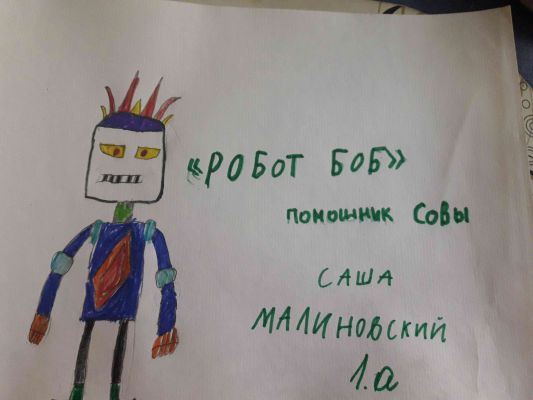 «РОБОТ БОБ»
помошник Совы
САША
МАЛИНОВСКИЙ
1.а